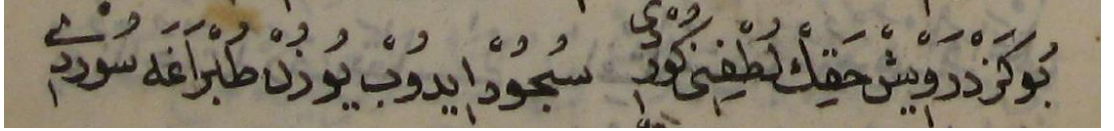 بُو كَز دَرْوِيشْ حَقِكْ لُطْفِنِى كُورْدِى سُجُودْ ايدُوبْ يُوزُنْ طُبْرَاغَه سُورْدِى